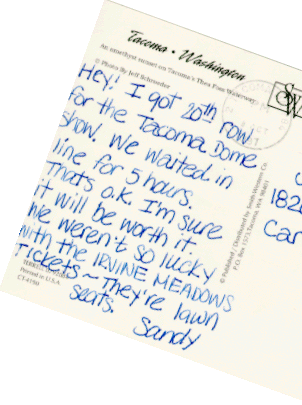 Tacoma • Washington
An amethyst sunset on Tacoma's Thea Foss Waterway
© Photo By Jeff Schroeder
Hey! I got 20th row
for the Tacoma Dome
show. We waited in
line for 5 hours.
Thats o.k. I'm sure
it will be worth it.
We weren't so lucky
with the IRVINE MEADOWS
Tickets ~ They're lawn
seats.
Sandy
Printed in U.S.A.
© Published / Distributed by Smith-Western Co.
P.O. Box 1573 Tacoma, WA 98401
SW
182
Car